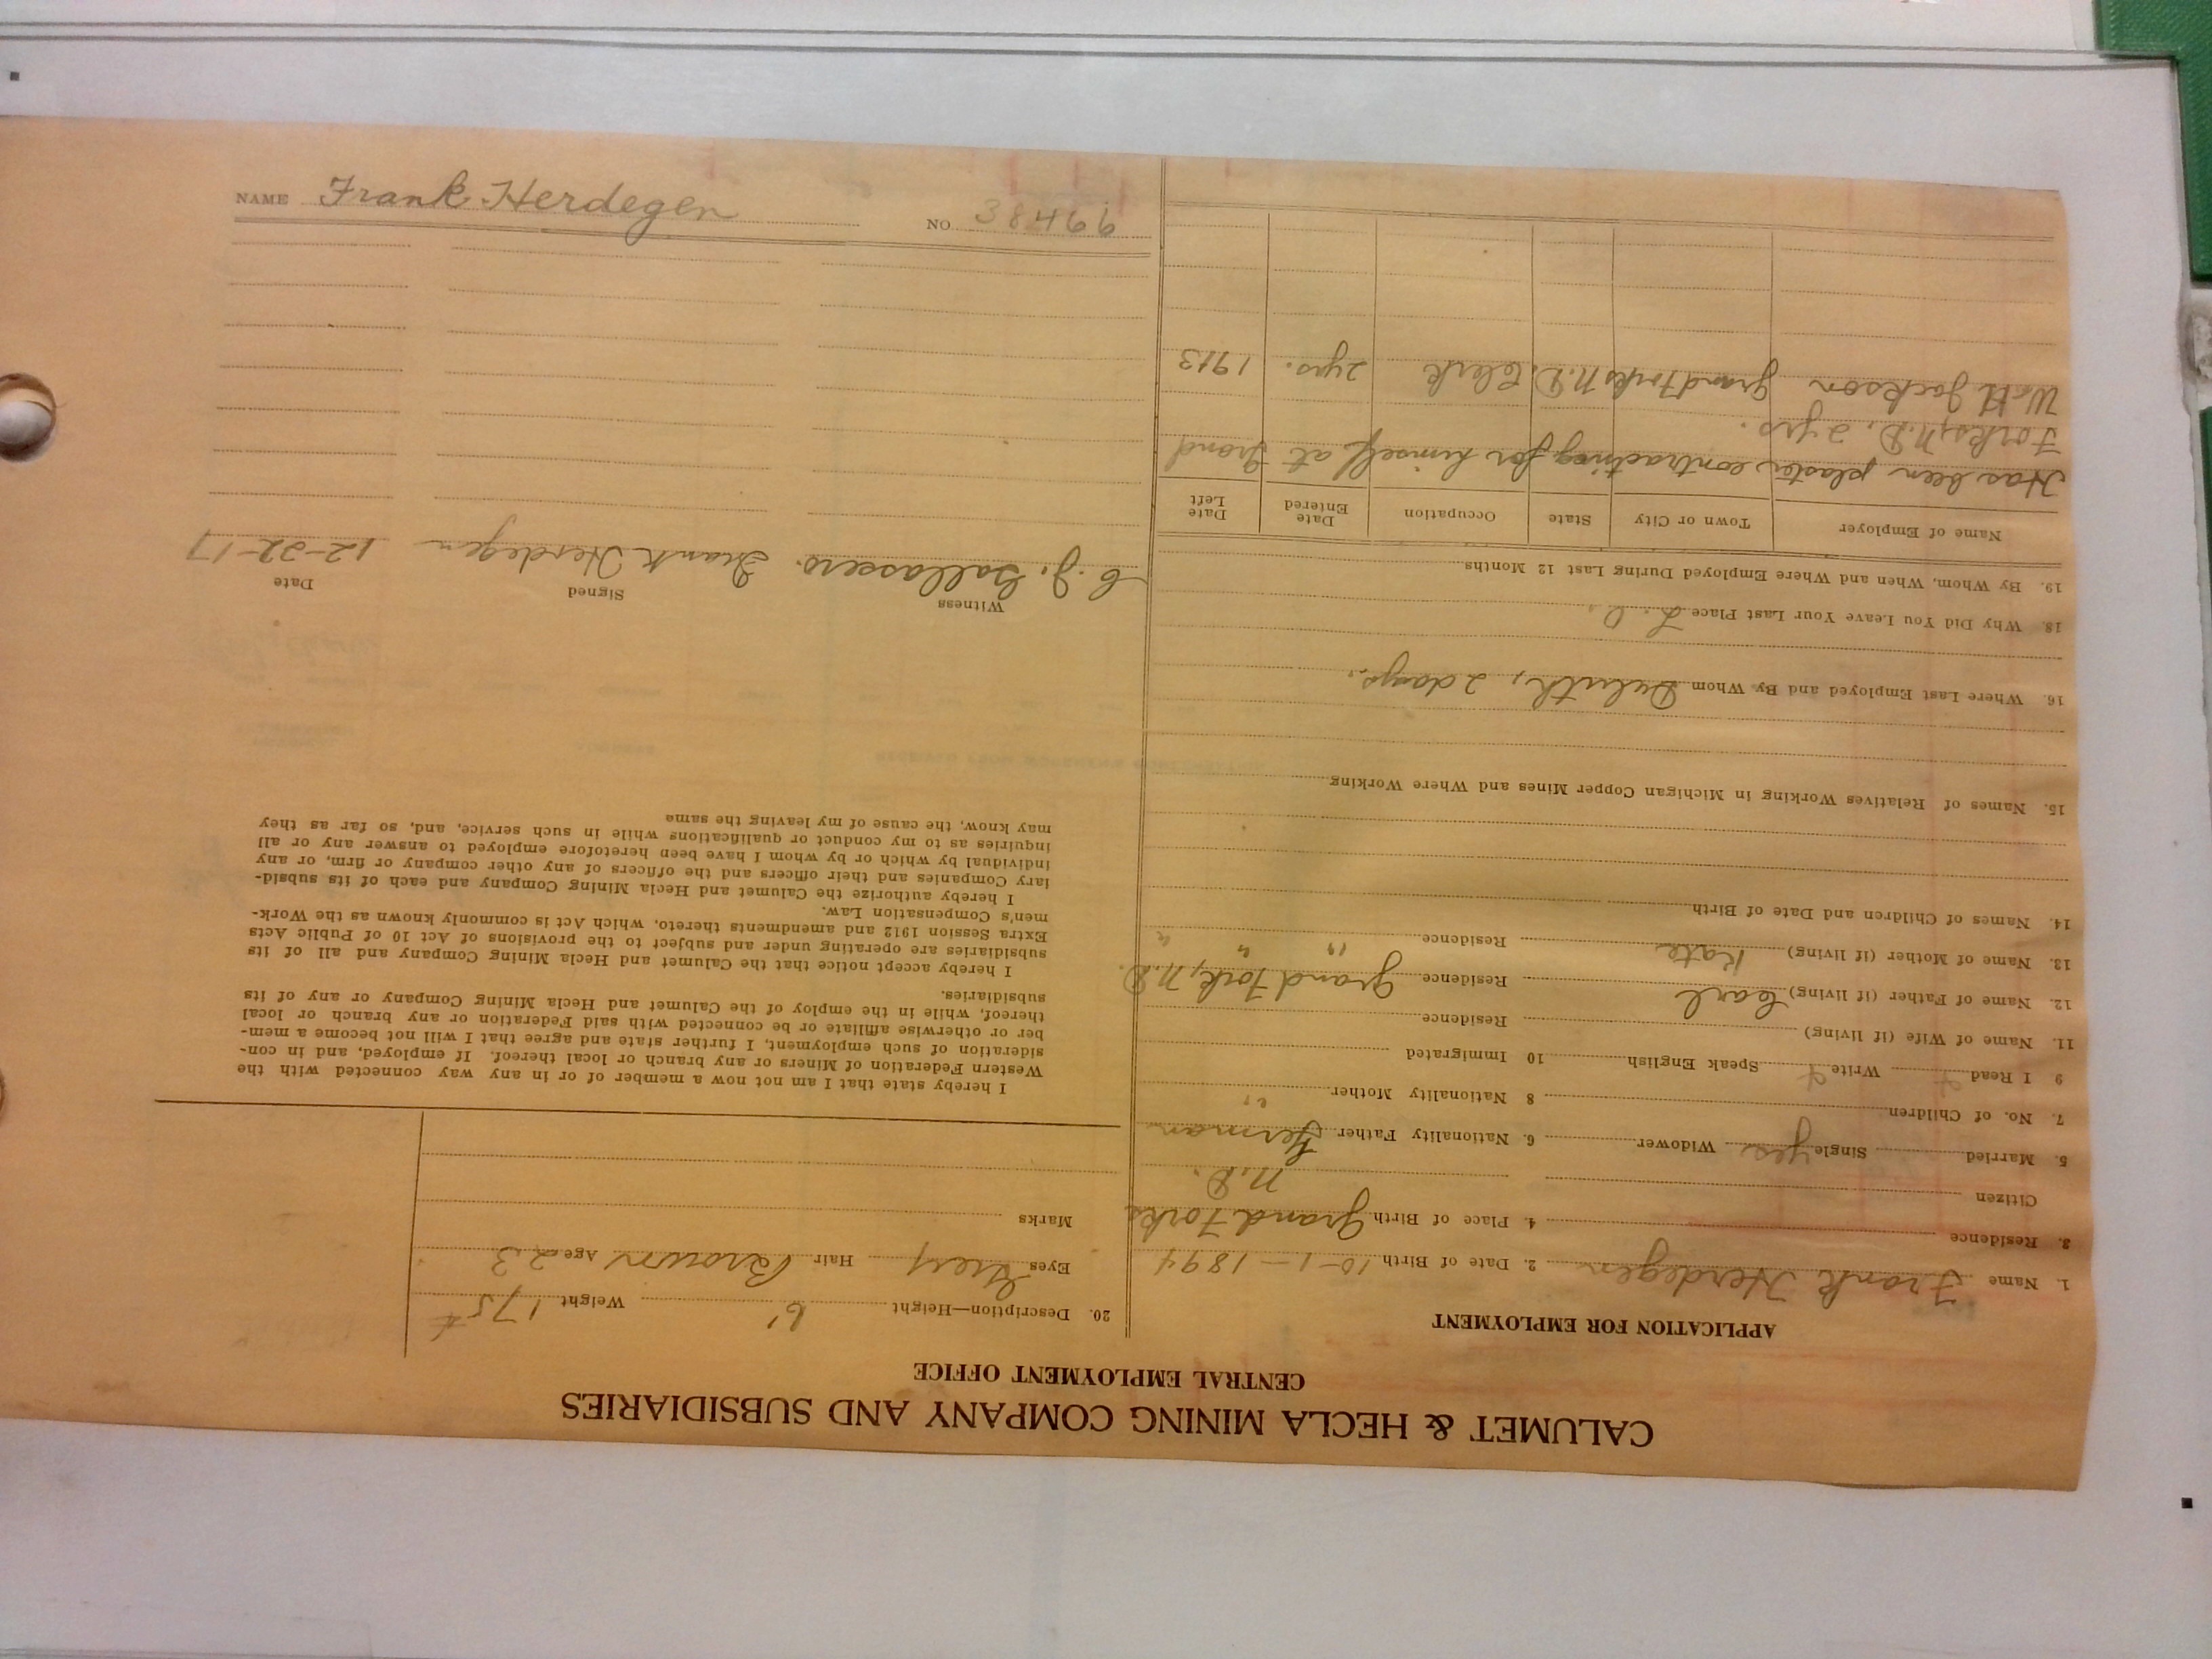 CALUMET & HECLA MINING COMPANY AND SUBSIDIARIES
CENTRAL EMPLOYMENT OFFICE
APPLICATION FOR EMPLOYMENT
1. Name Frank Herdegen 2. Date of Birth 10-1-1894
3. Residence 4. Place of Birth Grand Forks
Citizen N.D.
5. Married Single yes Widower 6. Nationality Father German
7. No. of Children 8 Nationality Mother "
9 I Read Write Speak English 10 Immigrated
11. Name of Wife (if living) Residence
12. Name of Father (if living) Carl Residence Grand Fork, N.D.
13. Name of Mother (if living) Kate Residence " " "
14. Names of Children and Date of Birth
15. Names of Relatives Working in Michigan Copper Mines and Where Working
16. Where Last Employed and By Whom Duluth, 2 days.
18. Why Did You Leave Your Last Place
19. By Whom, When and Where Employed During Last 12 Months
Name of Employer Town or City State Occupation Date Entered Date Left
Has been plaster contracting for himself at Grand
Forks, N.D. 2 yrs.
Jackson Grand Forks N.D. Clerk 2 yrs. 1913
20. Description—Height 6' Weight 175 #
Eyes Grey Hair Brown Age 23
Marks
I hereby state that I am not now a member of or in any way connected with the
Western Federation of Miners or any branch or local thereof. If employed, and in con-
sideration of such employment, I further state and agree that I will not become a mem-
ber or otherwise affiliate or be connected with said Federation or any branch or local
thereof, while in the employ of the Calumet and Hecla Mining Company or any of its
subsidiaries.
I hereby accept notice that the Calumet and Hecla Mining Company and all of its
subsidiaries are operating under and subject to the provisions of Act 10 of Public Acts
Extra Session 1912 and amendments thereto, which Act is commonly known as the Work-
men's Compensation Law.
I hereby authorize the Calumet and Hecla Mining Company and each of its subsid-
iary Companies and their officers and the officers of any other company or firm, or any
individual by which or by whom I have been heretofore employed to answer any or all
inquiries as to my conduct or qualifications while in such service, and, so far as they
may know, the cause of my leaving the same
Witness Signed Date
Frank Herdegen 12-22-17
NAME Frank Herdegen NO. 38469